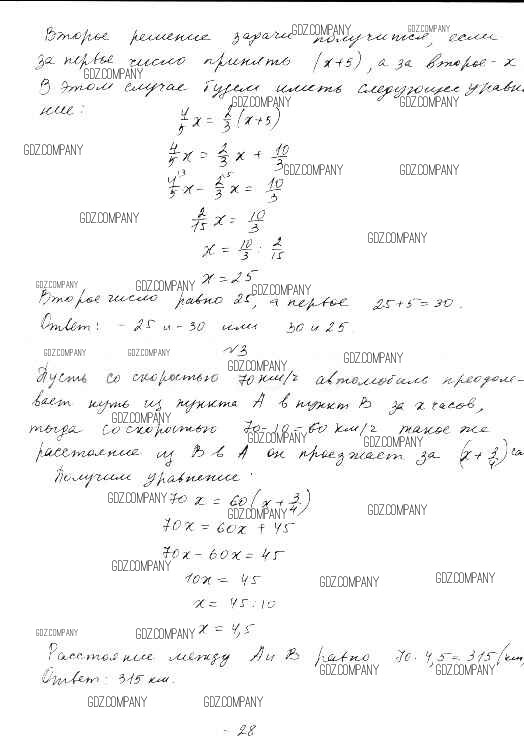 Второе решение задачи получится, если
за первое число принять (x+5), а за второе - x
В этом случае будем иметь следующее уравне-
ние:
4/5 x = 2/3 (x+5)
4/5 x = 2/3 x + 10/3
4/5 x - 2/3 x = 10/3
2/15 x = 10/3
x = 10/3 : 2/15
x = 25
Второе число равно 25, а первое 25+5=30.
Ответ: -25 и -30 или 30 и 25.
№3
Пусть со скоростью 70 км/ч автомобиль преодоле-
вает путь из пункта А в пункт В за x часов,
тогда со скоростью 70-10=60 км/ч такое же
расстояние из В в А он проезжает за (x + 3/4) ча
Получим уравнение:
70x = 60(x + 3/4)
70x = 60x + 45
70x - 60x = 45
10x = 45
x = 45:10
x = 4,5
Расстояние между А и В равно 70·4,5=315 (км)
Ответ: 315 км.
- 28
GDZ.COMPANY